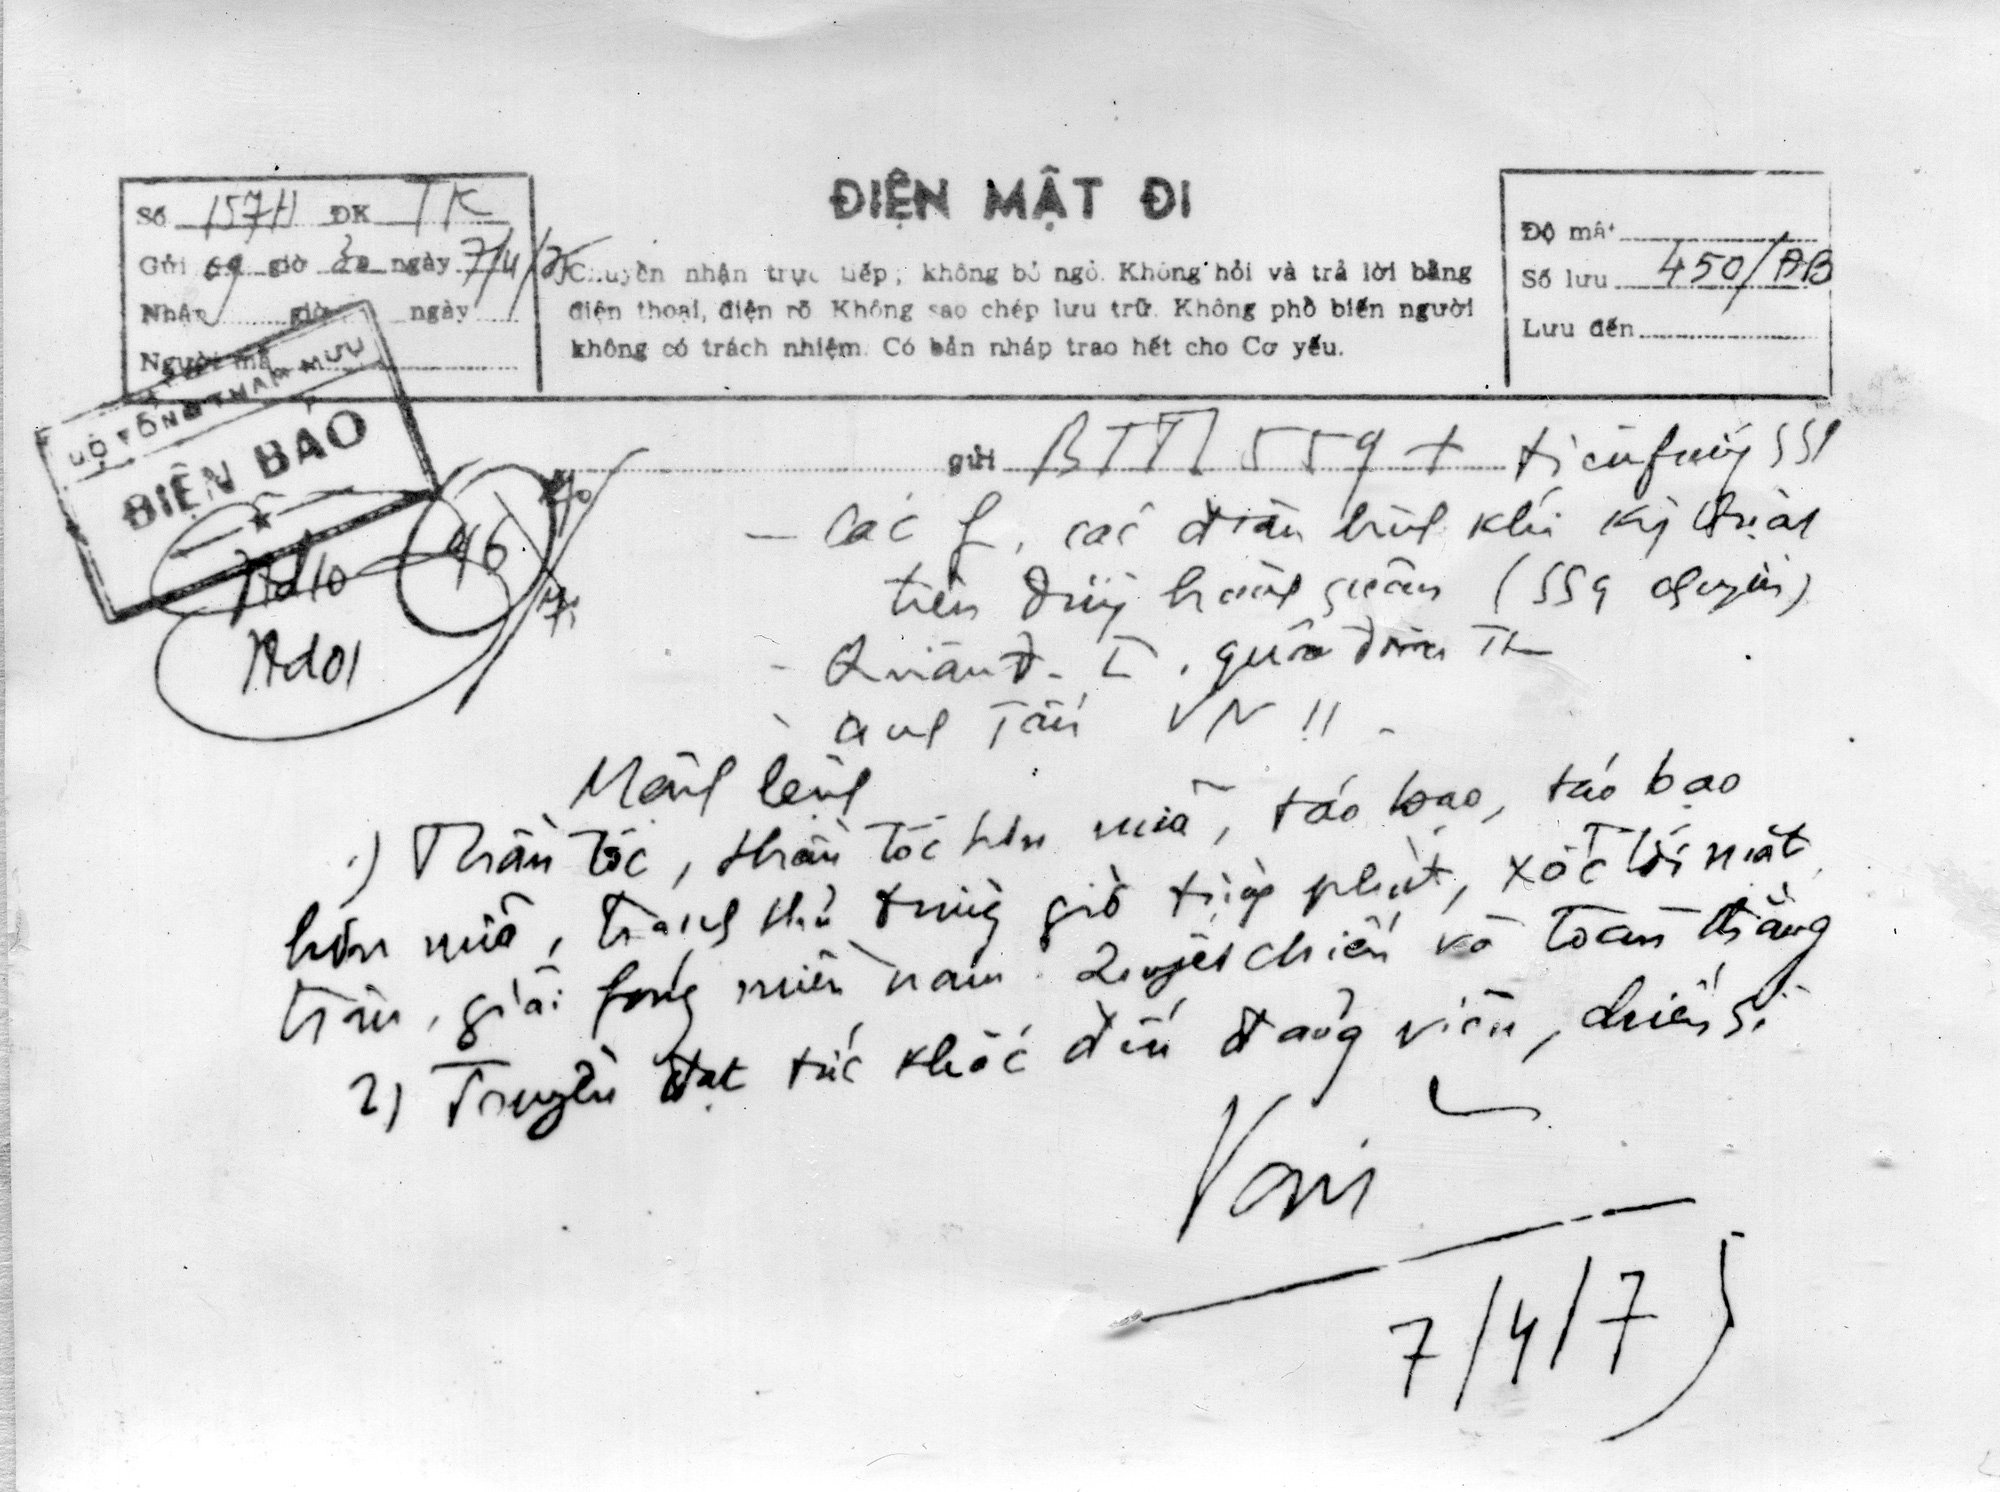 ĐIỆN MẬT ĐI
Số 157H ĐK TK
Gửi 09 giờ ngày 7/4/75
Nhận giờ ngày
Người mã
Chuyển nhận trực tiếp; không bỏ ngỏ. Không hỏi và trả lời bằng
điện thoại, điện rõ. Không sao chép lưu trữ. Không phổ biến người
không có trách nhiệm. Có bản nháp trao hết cho Cơ yếu.
Độ mật
Số lưu 450/ĐB
Lưu đến
BỘ TỔNG THAM MƯU
ĐIỆN BÁO
46
gửi BTTL 559 + tiền fương 559
- Các f, các đơn binh khí kỹ thuật
trên đường hành quân (559 chuyển)
- Quân đ. I, quân đoàn
- Anh Tấn VN !!
Mệnh lệnh
1) Thần tốc, thần tốc hơn nữa, táo bạo, táo bạo
hơn nữa, tranh thủ từng giờ từng phút, xốc tới mặt
trận, giải fóng miền nam. Quyết chiến và toàn thắng
2) Truyền đạt tức khắc đến đảng viên, chiến sĩ
Văn
7/4/75